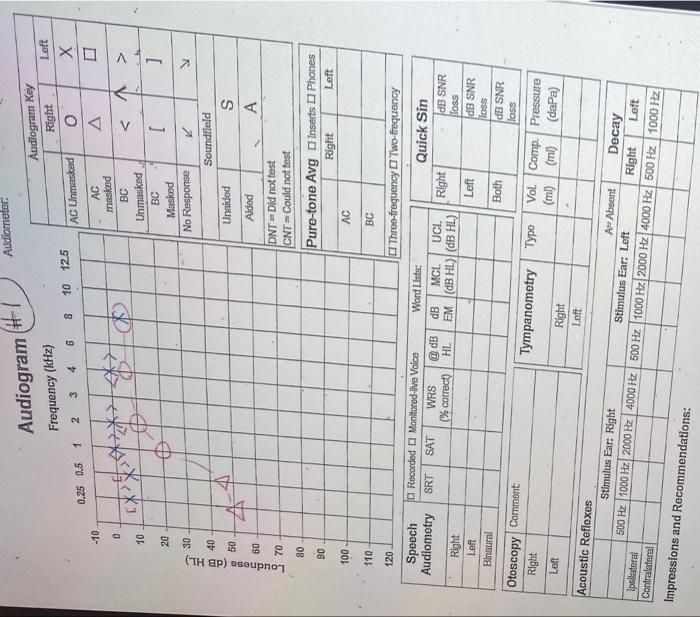 Audiogram #1
Audiometer:
Frequency (kHz)
0.25 0.5 1 2 3 4 6 8 10 12.5
Loudness (dB HL)
-10
0
10
20
30
40
50
60
70
80
90
100
110
120
Audiogram Key
Right Left
AC Unmasked O X
AC masked △ □
BC Unmasked < >
BC Masked [ ]
No Response ↙ ↘
Soundfield
Unaided S
Aided A
DNT = Did not test
CNT = Could not test
Pure-tone Avg □ Inserts □ Phones
Right Left
AC
BC
□ Three-frequency □ Two-frequency
Speech Audiometry
□ Recorded □ Monitored-live Voice Word Lists:
SRT SAT WRS (% correct) @ dB HL dB EM MCL (dB HL) UCL (dB HL)
Right
Left
Binaural
Quick Sin
Right dB SNR loss
Left dB SNR loss
Both dB SNR loss
Otoscopy Comment:
Right
Left
Tympanometry Type Vol. (ml) Comp. (ml) Pressure (daPa)
Right
Left
Acoustic Reflexes
A= Absent Decay
Stimulus Ear: Right Stimulus Ear: Left Right Left
500 Hz 1000 Hz 2000 Hz 4000 Hz 500 Hz 1000 Hz 2000 Hz 4000 Hz 500 Hz 1000 Hz
Ipsilateral
Contralateral
Impressions and Recommendations: